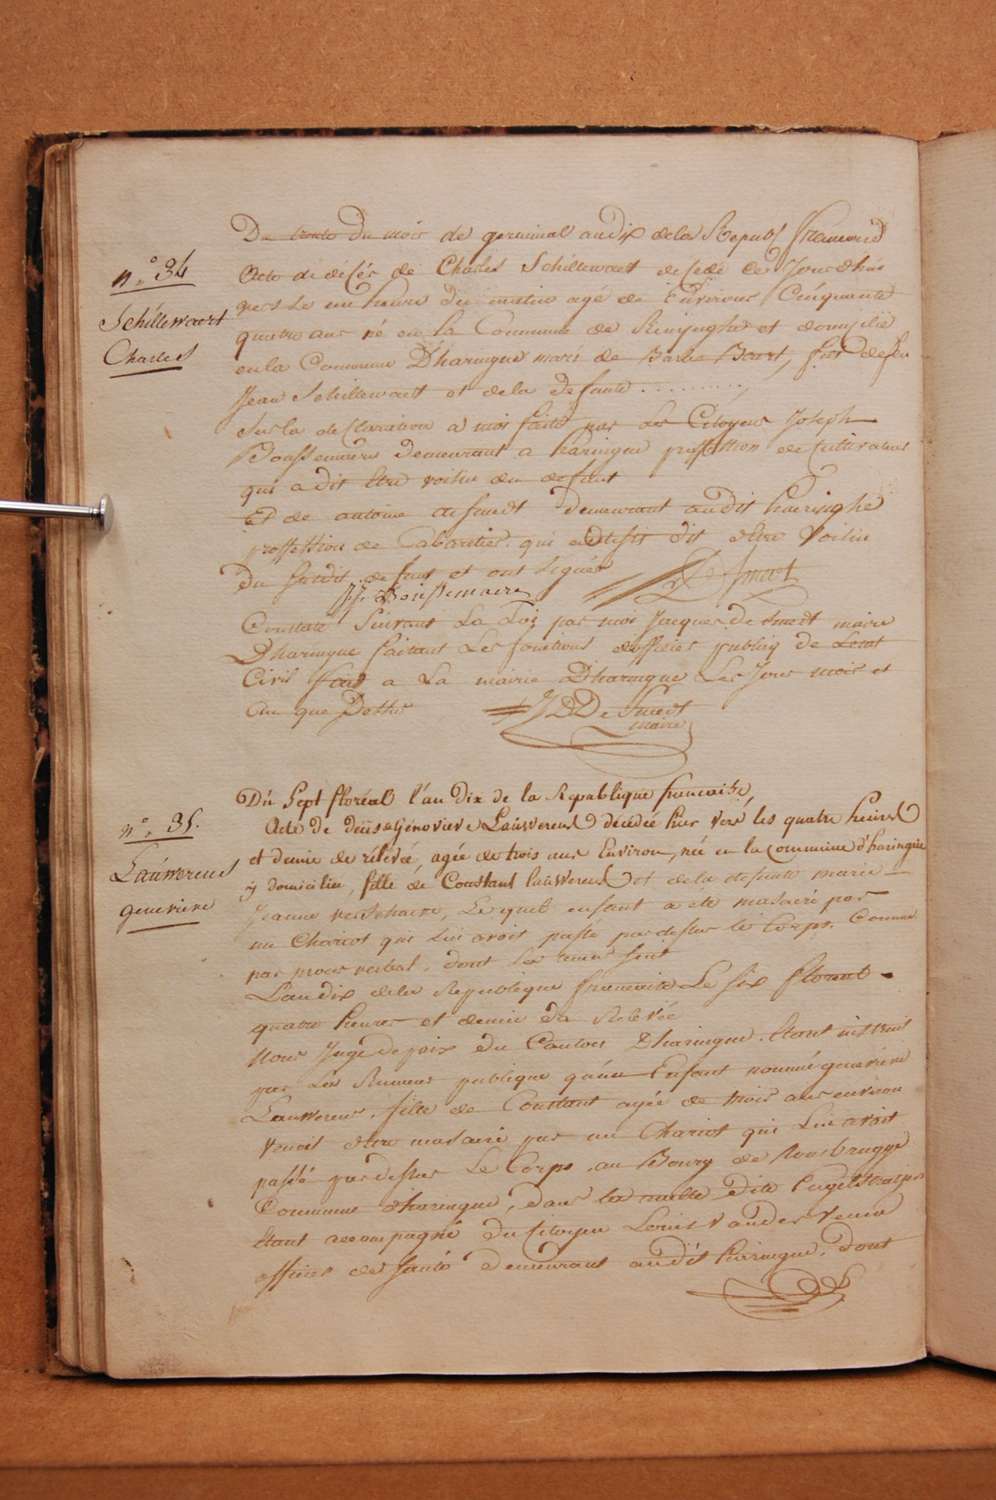 n.° 34
Schillewaert
Charles
Du trente du mois de germinal an dix de la Republ francaise
Acte de décés de Charles Schillewaert decedé ce Jourdhui
vers le une heure du matin agé de Environ Cinquante
quatre ans né en la Commune de Reninghe et domicilié
en la Commune Dharingue mari de Barbe Baert, fils de feu
Jean Schillewaert et de la defunte . . . . . . . . . .
Sur la declaration a moi faite par le Citoyen Joseph
Boussemaere demeurant a haringue profession de cultivateur
qui a dit Etre voisin du defunt
Et de antoine desmedt demeurant audit haringhe
proffession de Cabaretier qui a dit Etre Voisin
Du susdit defunt et ont signés
Constaté Suivant La Loi par moi Jacques De Smedt maire
Dharingue faisant Les fonctions dofficier public de Letat
Civil fait a La mairie Dharingue Les Jour mois et
an que Dessus
J D De Smedt
maire
n.° 35.
Lauwereus
genevieve
Du Sept floréal l'an dix de la Republique francaise,
Acte de décés de Génovieve Lauwereus decedée hier vers les quatre heures
et demie de rélévé, agée de trois ans Environ, née en la commune d'haringue
y domiciliée, fille de Constant lauwereus et de la defunte marie
Jeanne , Lequel enfant a eté masacré par
un Chariot qui Lui avoit passé par dessus le Corps. Comme
par proces verbal, dont la teneur suit
L'an dix de la Republique francaise Le six floreal
quatre heures et demie du Relevée
Nous Juge de paix du Canton Dharingue. Etant instruit
par La Rumeur publique qu'un Enfant nommé genevieve
Lauwereus, fille de Constant agée de trois ans environ
venoit detre masacré par un Chariot qui Lui avoit
passé par dessus Le Corps. au Bourg de Roosbrugge
Commune dharingue, dans la ruelle dite
Etant accompagné du Citoyen Louis Vandervenne
officier de santé Demeurant audit haringue. Dont